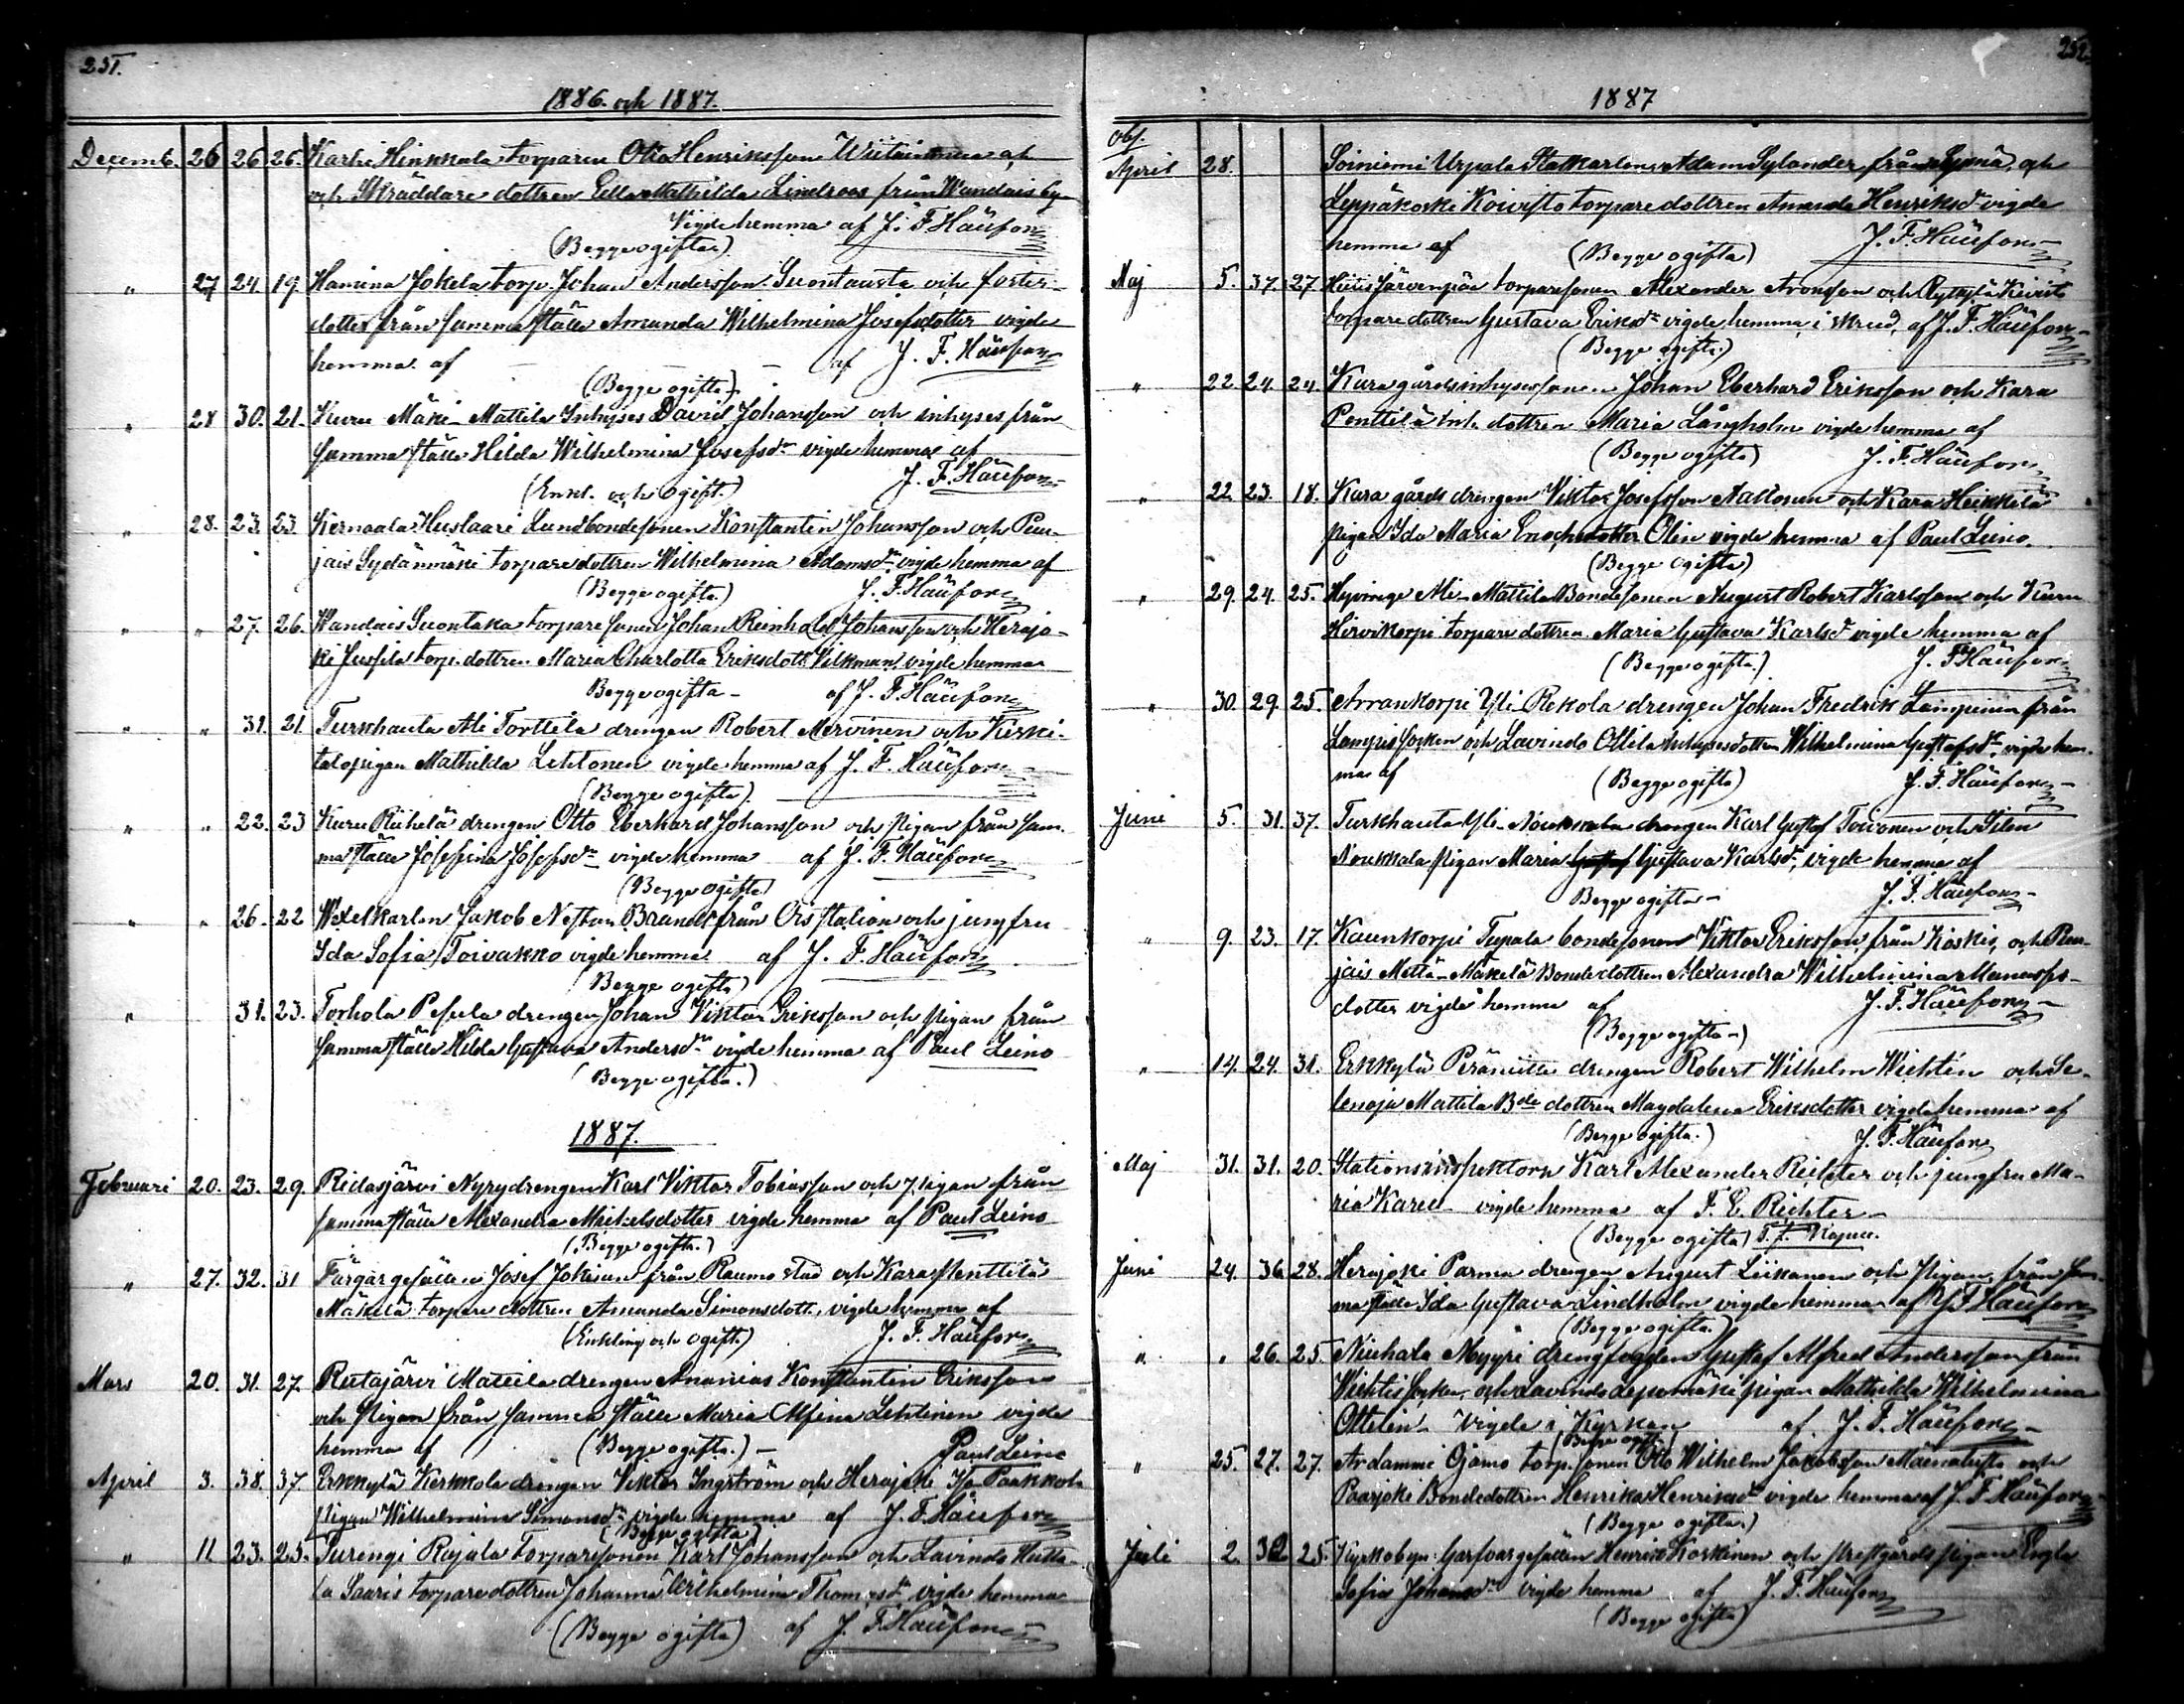 251.
1886. och 1887.
Decemb. 26 26 26. Karhi Hinkkala torparen Otto Henriksson
och Skräddare dottren Edla Mathilda Lindroos från Wandais by
Vigde hemma af J. F. Häuson
(Begge ogifta)
" 27 24 19. Hamina Jokela torp. Johan Andersson Suontausta och foster-
dotter från samma ställe Amanda Wilhelmina Josefsdotter vigde
hemma af — — af J. F. Häuson
(Begge ogifta)
" 28 30. 21. Kuru Mäki-Mattila Inhyses David Johansson och inhyses från
samma ställe Hilda Wilhelmina Josefsdr vigde hemma af
(Enkl. och ogift.) J. F. Häuson
" 28. 23. 23. Kernaala Huslaari Landbondesonen Konstantin Johansson och Puu-
jais Sydänmäki torparedottren Wilhelmina Adamsdr vigde hemma af
(Begge ogifta) J. F. Häuson
" " 27. 26. Wandais Suontaka torpare sonen Johan Reinhold Johansson och Herajo-
ki Jussila torp. dottren Maria Charlotta Eriksdott. Vilkman vigde hemma
Begge ogifta — af J. F. Häuson
" " 31. 21 Turkhauta Ali Torttila drengen Robert Mervinen och Kerki-
talopigan Mathilda Lehtonen vigde hemma af J. F. Häuson
(Begge ogifta)
" " 22. 23 Kuru Riihelä drengen Otto Eberhard Johansson och pigan från sam-
ma ställe Josefina Josefsdr vigde hemma af J. F. Häuson
(Begge ogifta)
" " 26. 22 Wexelkarlen Jakob Nestan Brandt från Ois station och jungfru
Ida Sofia Toivakko vigde hemma af J. F. Häuson
Begge ogifta)
" 31. 23. Torhola Pesula drengen Johan Viktor Eriksson och pigan från
samma ställe Hilda Gustava Andersdr vigde hemma af Paul Leino
(Begge ogifta.)
1887.
Februari 20. 23. 29. Ridasjärvi Nyry drengen Karl Viktor Tobiasson och pigan från
samma ställe Alexandra Mikelsdotter vigde hemma af Paul Leino
(Begge ogifta.)
" 27. 32. 31 Färgargesällen Josef Jokinen från Raumo stad och Kara Penttilä
Mäkelä torpare dottren Amanda Simonsdott. vigde hemma af
(Enkling och ogift.) J. F. Häuson
Mars 20. 31. 27. Ridasjärvi Mattila drengen Ananias Konstantin Eriksson
och pigan från samma ställe Maria Alfina Lehtinen vigde
hemma af (Begge ogifta.) — Paul Leino
April 3. 38. 37. Erkkylä Kerkkola drengen Viktor Ingström och Herajoki Iso Paakkola
pigan Wilhelmina Simonsdr vigde hemma af J. F. Häuson
(Begge ogifta)
" 11 23. 25. Turengi Rajala torparesonen Karl Johansson och Lavinda Hutta-
la Saaris torparedottren Johanna Wilhelmina Thomasdr vigde hemma
(Begge ogifta) af J. F. Häuson
252.
1887
Obs.
April 28. Soiniemi Urpala Statkarlen Adam Sylander från och
Leppäkoski Koivisto torparedottren Amanda Henriksdr vigde
hemma af (Begge ogifta) J. F. Häuson
Maj 5. 37. 27 Hiivis Järvenpää torparesonen Alexander Aronsson och Ryttylä Kivistö
torpare dottren Gustava Eriksdr vigde hemma i skrud af J. F. Häuson
(Begge ogifta)
" 22. 24. 24. Kara gårds inhysessonen Johan Eberhard Eriksson och Kara
Penttilä Inh. dottren Maria Långholm vigde hemma af
(Begge ogifta) J. F. Häuson
" 22. 23. 18. Kara gårds drengen Viktor Josefsson Aaltonen och Kara Heikkilä
pigan Ida Maria Enochsdotter Olin vigde hemma af Paul Leino.
(Begge ogifta)
" 29. 24. 25. Hyvinge Ali-Mattila Bondesonen August Robert Karlsson och Kuru
Hirvikorpi torpare dottren Maria Gustava Karlsdr vigde hemma af
(Begge ogifta.) J. F. Häuson
" 30. 29. 25. Arrankorpi Yli-Rekola drengen Johan Fredrik Lampinen från
Lampis socken och Lavinda Ollila Inhysesdottren Wilhelmina Gustafsdr vigde hem-
ma af (Begge ogifta) J. F. Häuson
Juni 5. 31. 37. Turkhauta Yli-Noukkala drengen Karl Gustaf Toivonen och Silen
Noukkala pigan Maria Gustava Karlsdr vigde hemma af
Begge ogifta — J. F. Häuson
" 9. 23. 17. Kaunkorpi Tupala bondesonen Viktor Eriksson från Koskis och Puu-
jais Mettä-Mäkelä Bondedottren Alexandra Wilhelmina Manasse-
dotter vigde hemma af J. F. Häuson
(Begge ogifta —)
" 14. 24. 31. Erkkylä Peräniitti drengen Robert Wilhelm Wichtin och Se-
lenoja Mattila Bde dottren Magdalena Eriksdotter vigde hemma af
(Begge ogifta.) J. F. Häuson
Maj 31. 31. 20. Stationsinspektorn Karl Alexander Richter och jungfru Ma-
ria Kared vigde hemma af F. E. Richter —
(Begge ogifta)
Juni 24. 36 28. Herajoki Parma drengen August Liikanen och pigan från sam-
ma ställe Ida Gustava Lindholm vigde hemma af J. F. Häuson
(Begge ogifta.)
" " 26. 25. Niehala Myyri drengfogden Gustaf Alfred Andersson från
Wichtis socken och Lavinda Lepomäki pigan Mathilda Wilhelmina
Ottelin — vigde i Kyrkan af J. F. Häuson
(Begge ogift.)
" 25. 27. 27. Ardammi Ojamo torp. sonen Otto Wilhelm Jakobsson och
Paarjoki Bondedottren Henrika Henriksdr vigde hemma af J. F. Häuson
(Begge ogifta.)
Juli 2. 32. 25. Kyrkobyn Garfvargesällen Henrik Koskinen och prestgårds pigan Engla
Sofia Johansdr vigde hemma af J. F. Häuson
(Begge ogifta)